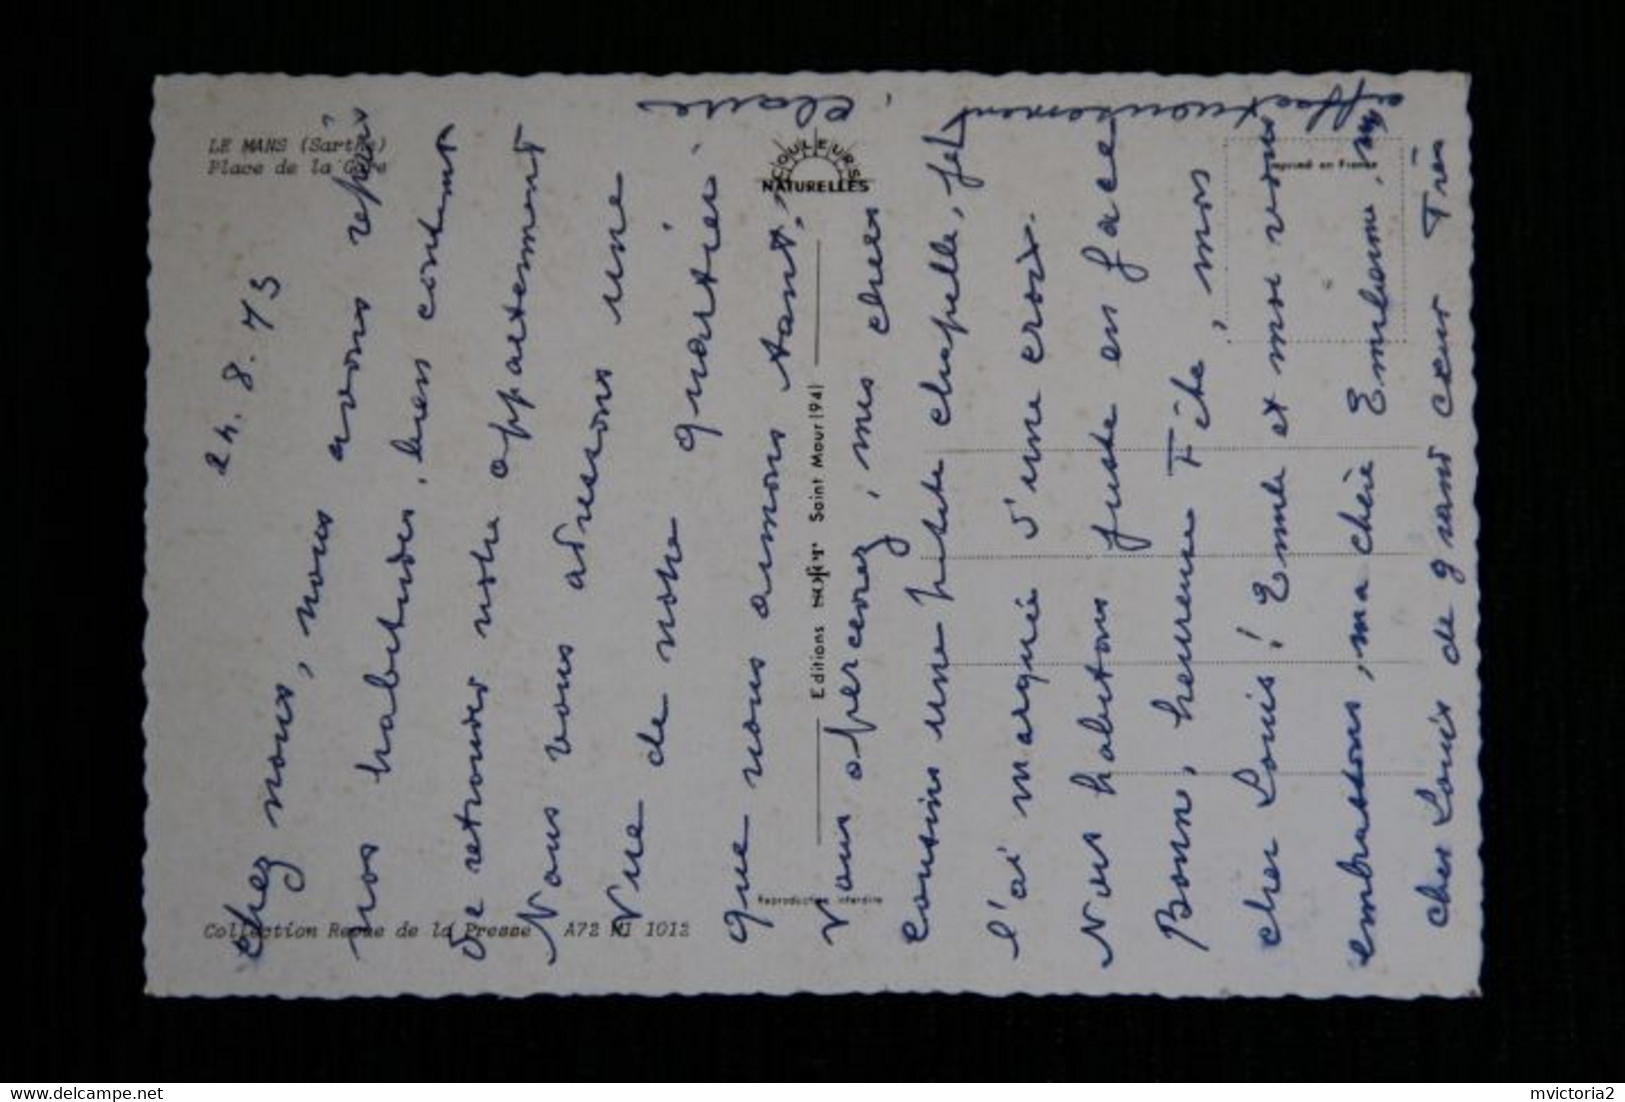 LE MANS (Sarthe)
Place de la Gare
COULEURS
NATURELLES
Imprimé en France
Editions SOFER Saint Maur (94)
Reproduction interdite
Collection Revue de la Presse A72 MI 1012
24.8.73
Chez nous, nous avons repris
nos habitudes, bien contents
de retrouver notre appartement
Nous vous adressons une
vue de notre quartier
que nous aimons tant.
Vous apercevez, mes chers
cousins une petite chapelle, je
l'ai marquée d'une croix.
Nous habitons juste en face
Bonne, heureuse Fête, mon
cher Louis! Emile et moi vous
embrassons, ma chère Emilienne, mon
cher Louis de grand cœur Très
affectueusement
Claire
mvictoria2